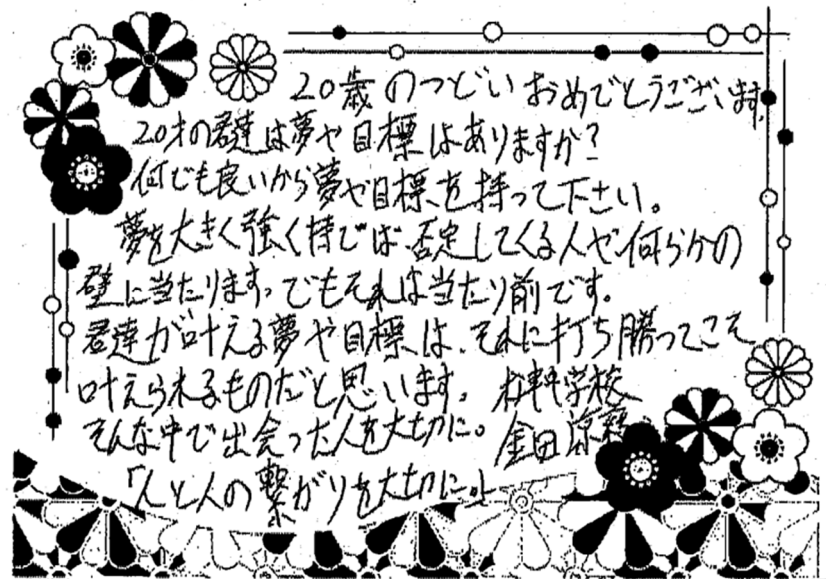 20歳のつどいおめでとうございます。
20才の君達は夢や目標はありますか?
何でも良いから夢や目標を持って下さい。
夢を大きく強く持てば、否定してくる人や、何らかの
壁に当たります。でもそれは当たり前です。
君達が叶える夢や目標は、それに打ち勝ってこそ
叶えられるものだと思います。
そんな中で出会った人を大切に。
「人と人の繋がりを大切に。」
学校
金田